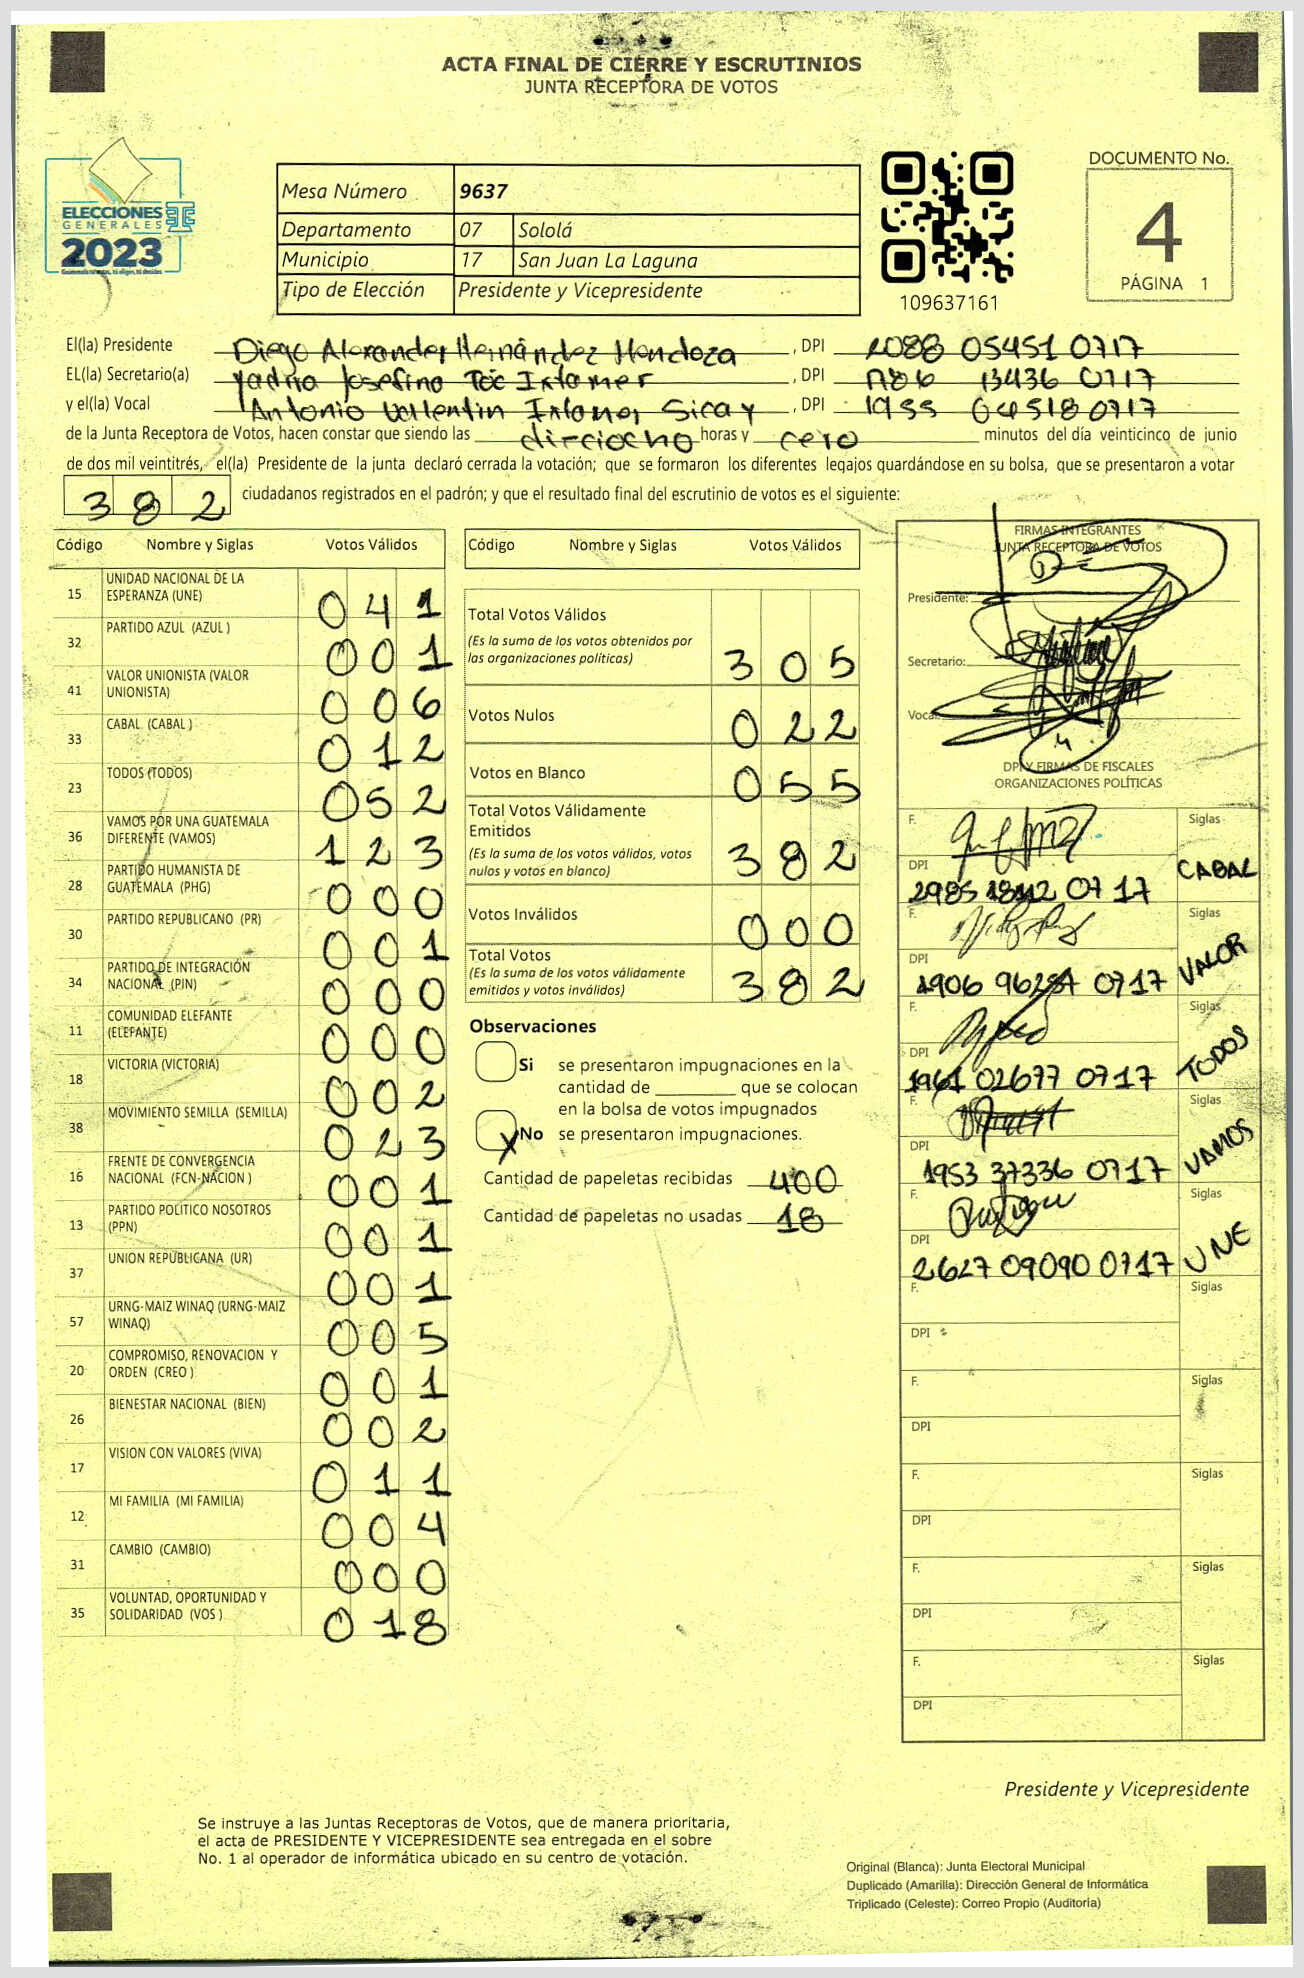 ACTA FINAL DE CIERRE Y ESCRUTINIOS
JUNTA RECEPTORA DE VOTOS
ELECCIONES
GENERALES
2023
Mesa Número 9637
Departamento 07 Sololá
Municipio 17 San Juan La Laguna
Tipo de Elección Presidente y Vicepresidente
109637161
DOCUMENTO No.
4
PÁGINA 1
El(la) Presidente Diego Alexander Hernández Mendoza , DPI 2088 05451 0717
EL(la) Secretario(a) Josefina Toc Ixtamer , DPI 13436 0717
y el(la) Vocal Antonio Vallentin Ixtamer Sicay , DPI 1955 04518 0717
de la Junta Receptora de Votos, hacen constar que siendo las dieciocho horas y cero minutos del día veinticinco de junio
de dos mil veintitrés, el(la) Presidente de la junta declaró cerrada la votación; que se formaron los diferentes legajos guardándose en su bolsa, que se presentaron a votar
382 ciudadanos registrados en el padrón; y que el resultado final del escrutinio de votos es el siguiente:
Código Nombre y Siglas Votos Válidos
15 UNIDAD NACIONAL DE LA ESPERANZA (UNE) 041
32 PARTIDO AZUL (AZUL ) 001
41 VALOR UNIONISTA (VALOR UNIONISTA) 006
33 CABAL (CABAL ) 012
23 TODOS (TODOS) 052
36 VAMOS POR UNA GUATEMALA DIFERENTE (VAMOS) 123
28 PARTIDO HUMANISTA DE GUATEMALA (PHG) 000
30 PARTIDO REPUBLICANO (PR) 001
34 PARTIDO DE INTEGRACIÓN NACIONAL (PIN) 000
11 COMUNIDAD ELEFANTE (ELEFANTE) 000
18 VICTORIA (VICTORIA) 002
38 MOVIMIENTO SEMILLA (SEMILLA) 023
16 FRENTE DE CONVERGENCIA NACIONAL (FCN-NACION ) 001
13 PARTIDO POLITICO NOSOTROS (PPN) 001
37 UNION REPUBLICANA (UR) 001
57 URNG-MAIZ WINAQ (URNG-MAIZ WINAQ) 005
20 COMPROMISO, RENOVACION Y ORDEN (CREO ) 001
26 BIENESTAR NACIONAL (BIEN) 002
17 VISION CON VALORES (VIVA) 011
12 MI FAMILIA (MI FAMILIA) 004
31 CAMBIO (CAMBIO) 000
35 VOLUNTAD, OPORTUNIDAD Y SOLIDARIDAD (VOS ) 018
Código Nombre y Siglas Votos Válidos
Total Votos Válidos
(Es la suma de los votos obtenidos por
las organizaciones políticas) 305
Votos Nulos 022
Votos en Blanco 055
Total Votos Válidamente
Emitidos
(Es la suma de los votos válidos, votos
nulos y votos en blanco) 382
Votos Inválidos 000
Total Votos
(Es la suma de los votos válidamente
emitidos y votos inválidos) 382
Observaciones
Si se presentaron impugnaciones en la
cantidad de ________ que se colocan
en la bolsa de votos impugnados
X No se presentaron impugnaciones.
Cantidad de papeletas recibidas 400
Cantidad de papeletas no usadas 18
FIRMAS INTEGRANTES
JUNTA RECEPTORA DE VOTOS
Presidente:
Secretario:
Vocal:
DPI Y FIRMAS DE FISCALES
ORGANIZACIONES POLÍTICAS
F. Siglas
DPI CABAL
2985 0717
F. Siglas
DPI VALOR
1906 0717
F. Siglas
DPI TODOS
1961 02677 0717
F. Siglas
DPI VAMOS
1953 37336 0717
F. Siglas
DPI UNE
2627 09090 0717
F. Siglas
DPI
F. Siglas
DPI
F. Siglas
DPI
F. Siglas
DPI
F. Siglas
DPI
Presidente y Vicepresidente
Se instruye a las Juntas Receptoras de Votos, que de manera prioritaria,
el acta de PRESIDENTE Y VICEPRESIDENTE sea entregada en el sobre
No. 1 al operador de informática ubicado en su centro de votación.
Original (Blanca): Junta Electoral Municipal
Duplicado (Amarilla): Dirección General de Informática
Triplicado (Celeste): Correo Propio (Auditoría)